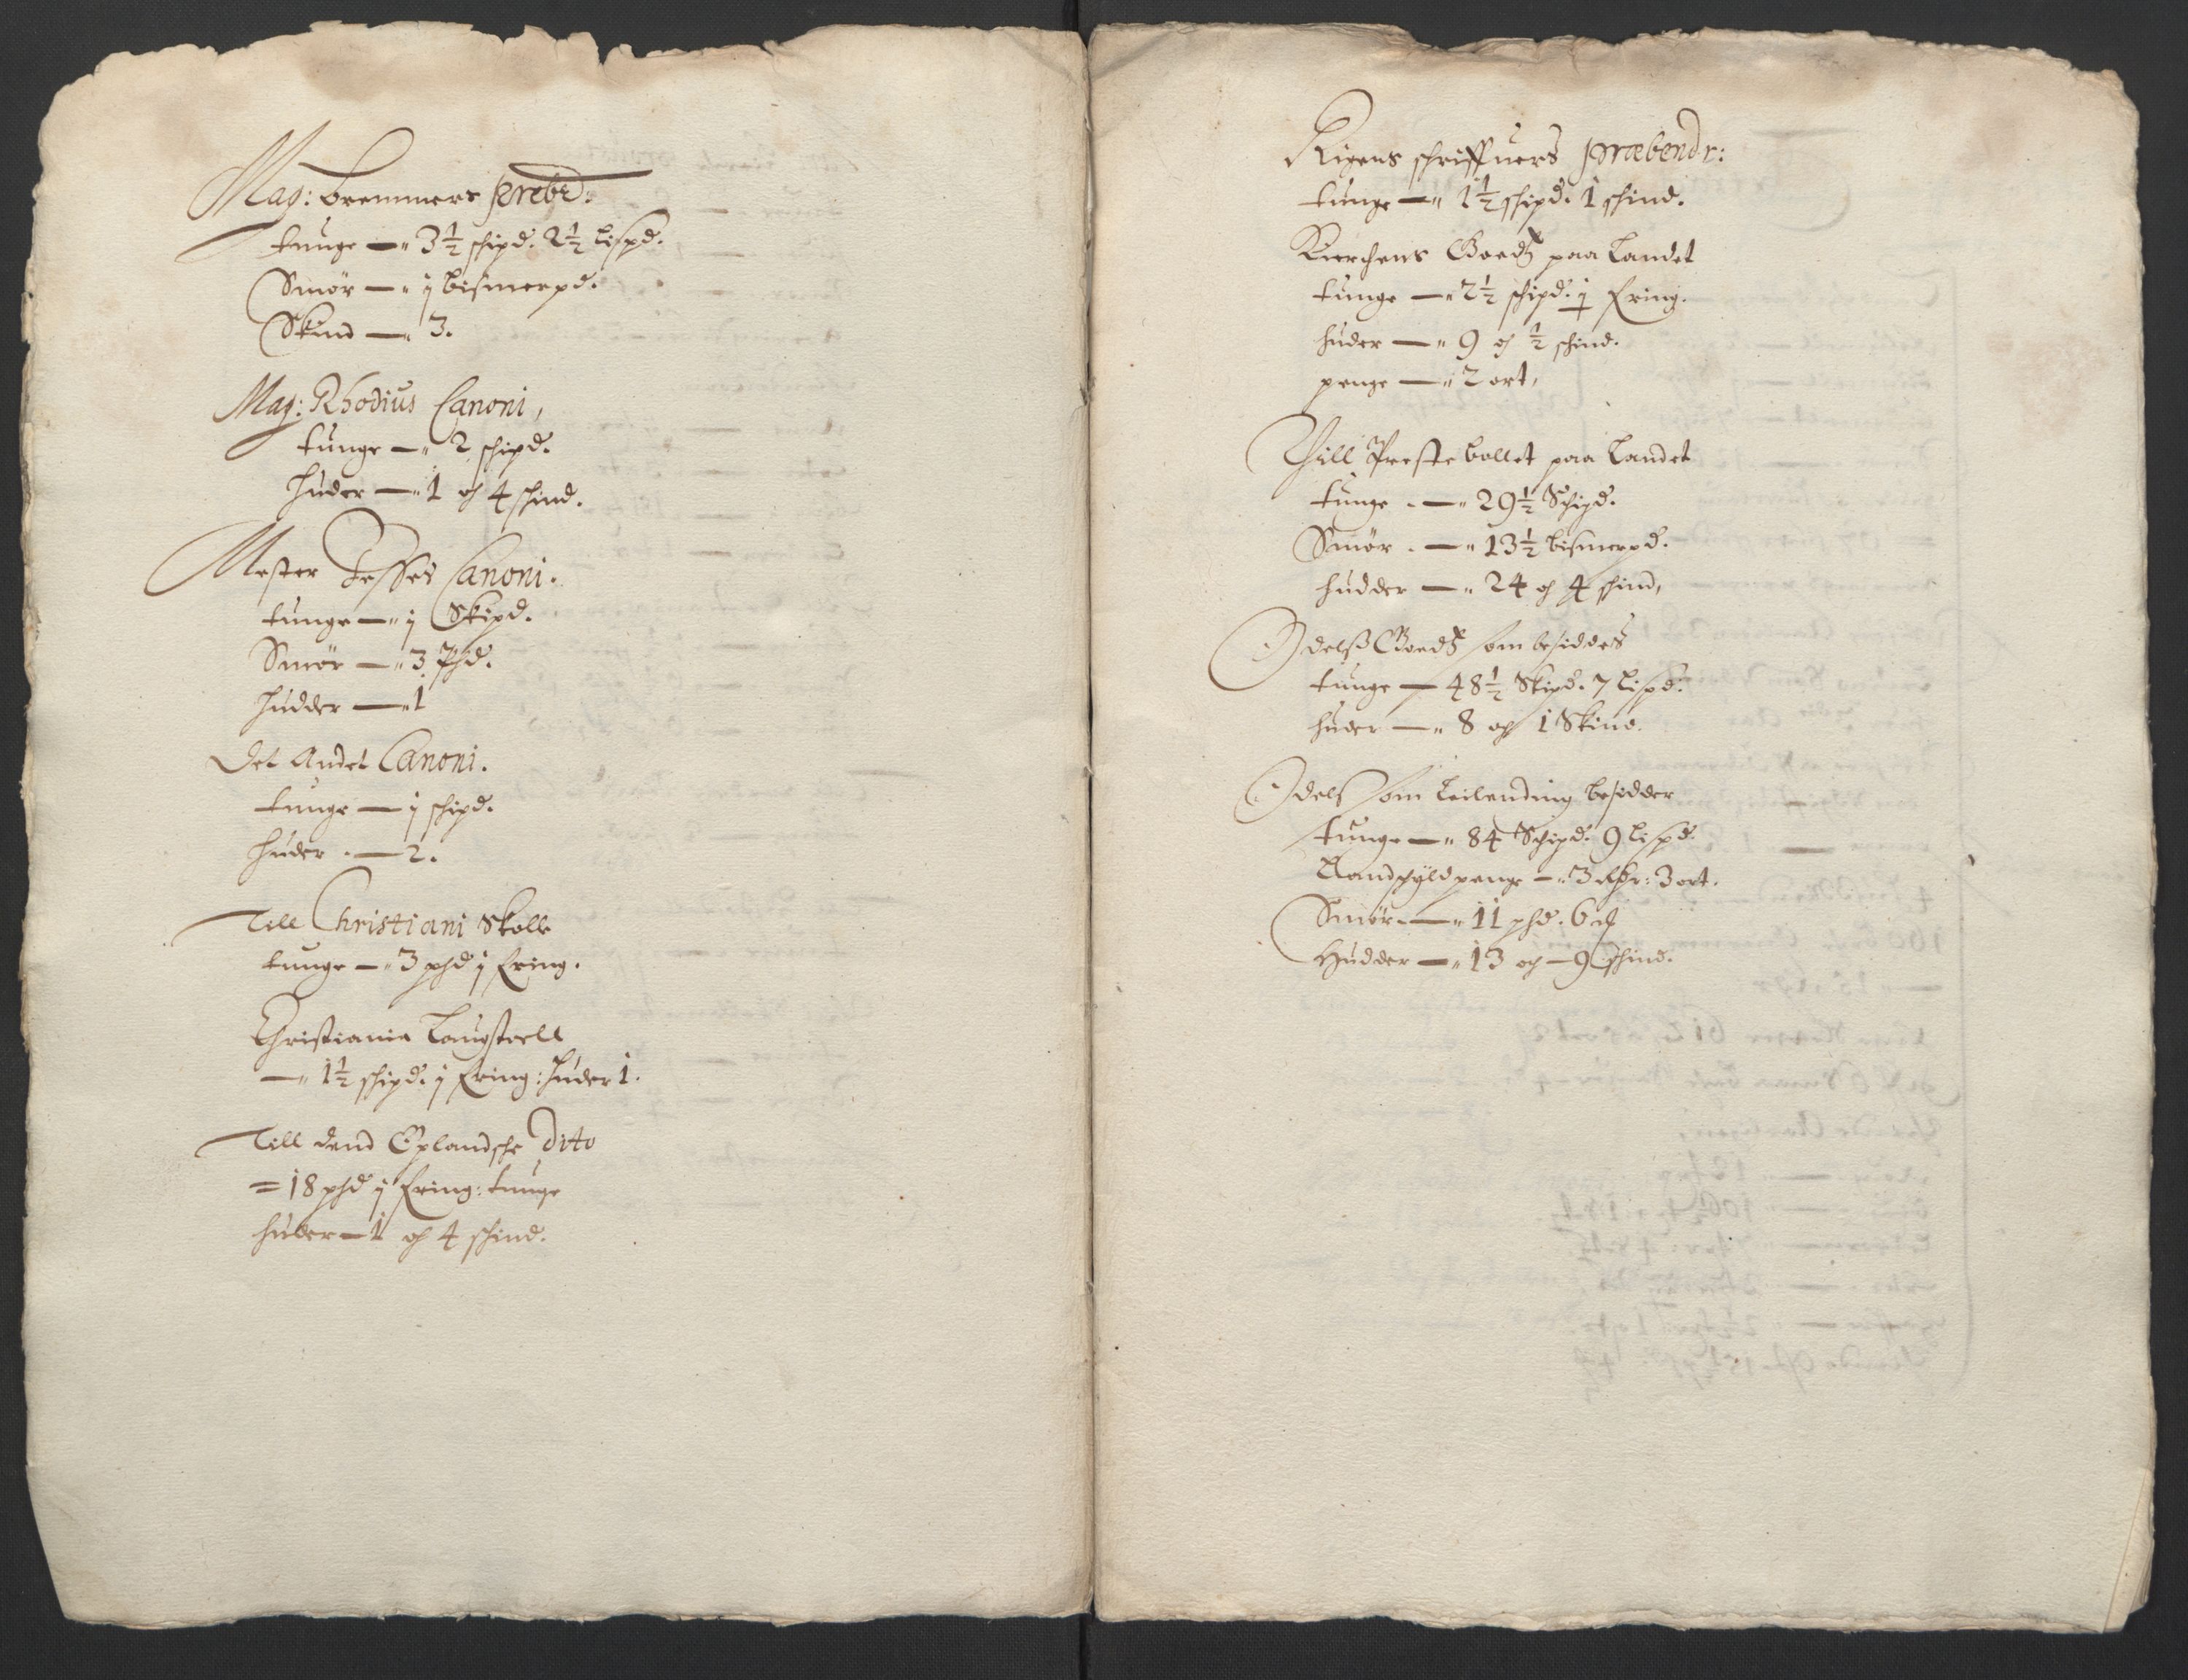 Mag: Bremmers Prebd:
tunge — 3½ schipd. 2½ Lispd.
Smør — j bismerpd.
Skind — 3.
Mag: Rhodius Canoni,
tunge — 2 schipd.
Huder — 1 och 4 schind.
Mester Jesses Canoni.
tunge — j Skipd.
Smør — 3 Phd.
Hudder — 1
Det Andet Canoni.
tunge — j schipd.
Huder — 2.
Till Christiani Skolle
tunge — 3 phd j fring.
Christiania Laugstoell
— 1½ schipd. j fring: Huder 1.
Till dend Oplandsche Dito
= 18 phd j fring: tunge
huder — 1 och 4 schind.
Rigens schriffuers præbendr:
tunge — 1½ schipd. 1 schind.
Kierchens Goeds paa Landet
tunge — 2½ schipd. j fring.
Huder — 9 och ½ schind.
penge — 2 ort,
Thill Prestebollet paa Landet
tunge — 29½ Schipd.
Smør — 13½ bismerpd.
Hudder — 24 och 4 schind,
Odelss Goeds som besiddes
tunge — 48½ Skipd. 7 Lispd.
Huder — 8 och 1 Skind.
Odels som Leilending besidder
tunge — 84 Schipd. 9 Lispd.
Landschyld penge — 3 Rdr: 3 ort.
Smør — 11 phd. 6
Hudder — 13 och — 9 schind.